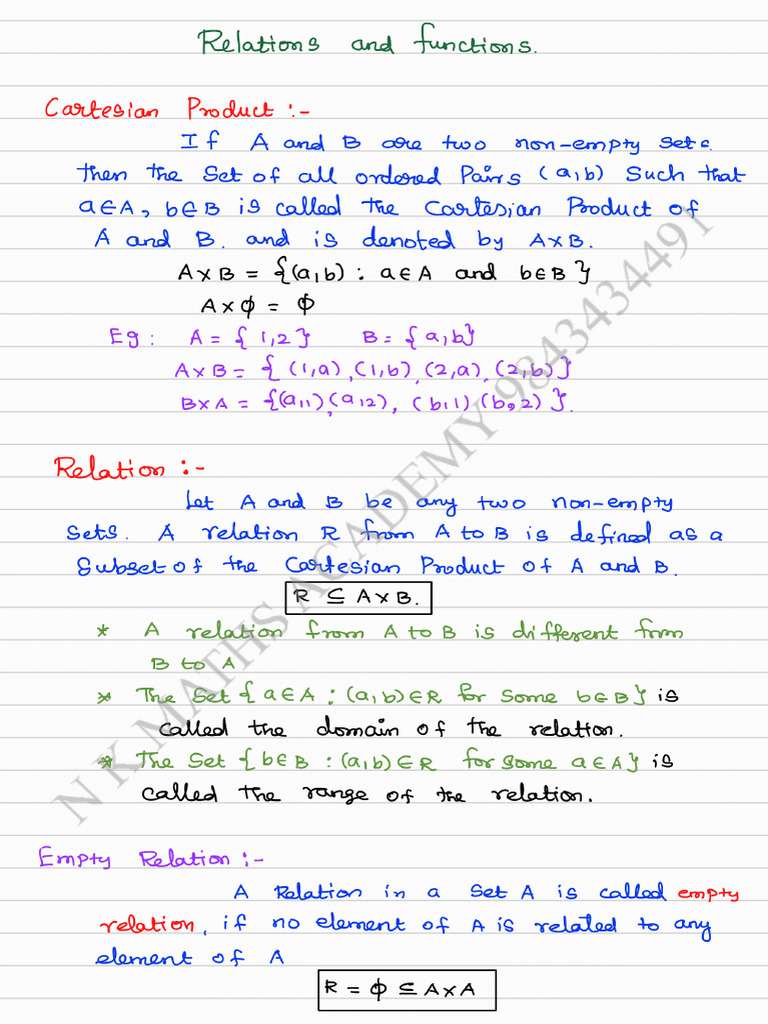 Relations and functions.
Cartesian Product :-
If A and B are two non-empty sets.
then the set of all ordered Pairs (a,b) Such that
a∈A, b∈B is called the Cartesian Product of
A and B. and is denoted by A×B.
A×B = {(a,b) : a∈A and b∈B}
A×ϕ = ϕ
Eg : A = {1,2} B = {a,b}
A×B = {(1,a),(1,b),(2,a),(2,b)}
B×A = {(a,1)(a,2), (b,1)(b,2)}.
Relation :-
Let A and B be any two non-empty
sets. A relation R from A to B is defined as a
Subset of the Cartesian Product of A and B.
R ⊆ A×B.
* A relation from A to B is different from
B to A
* The Set {a∈A : (a,b)∈R for some b∈B} is
called the domain of the relation.
* The Set {b∈B : (a,b)∈R for some a∈A} is
called the range of the relation.
Empty Relation :-
A Relation in a set A is called empty
relation, if no element of A is related to any
element of A
R = ϕ ⊆ A×A
N K MATHS ACADEMY 9843434491